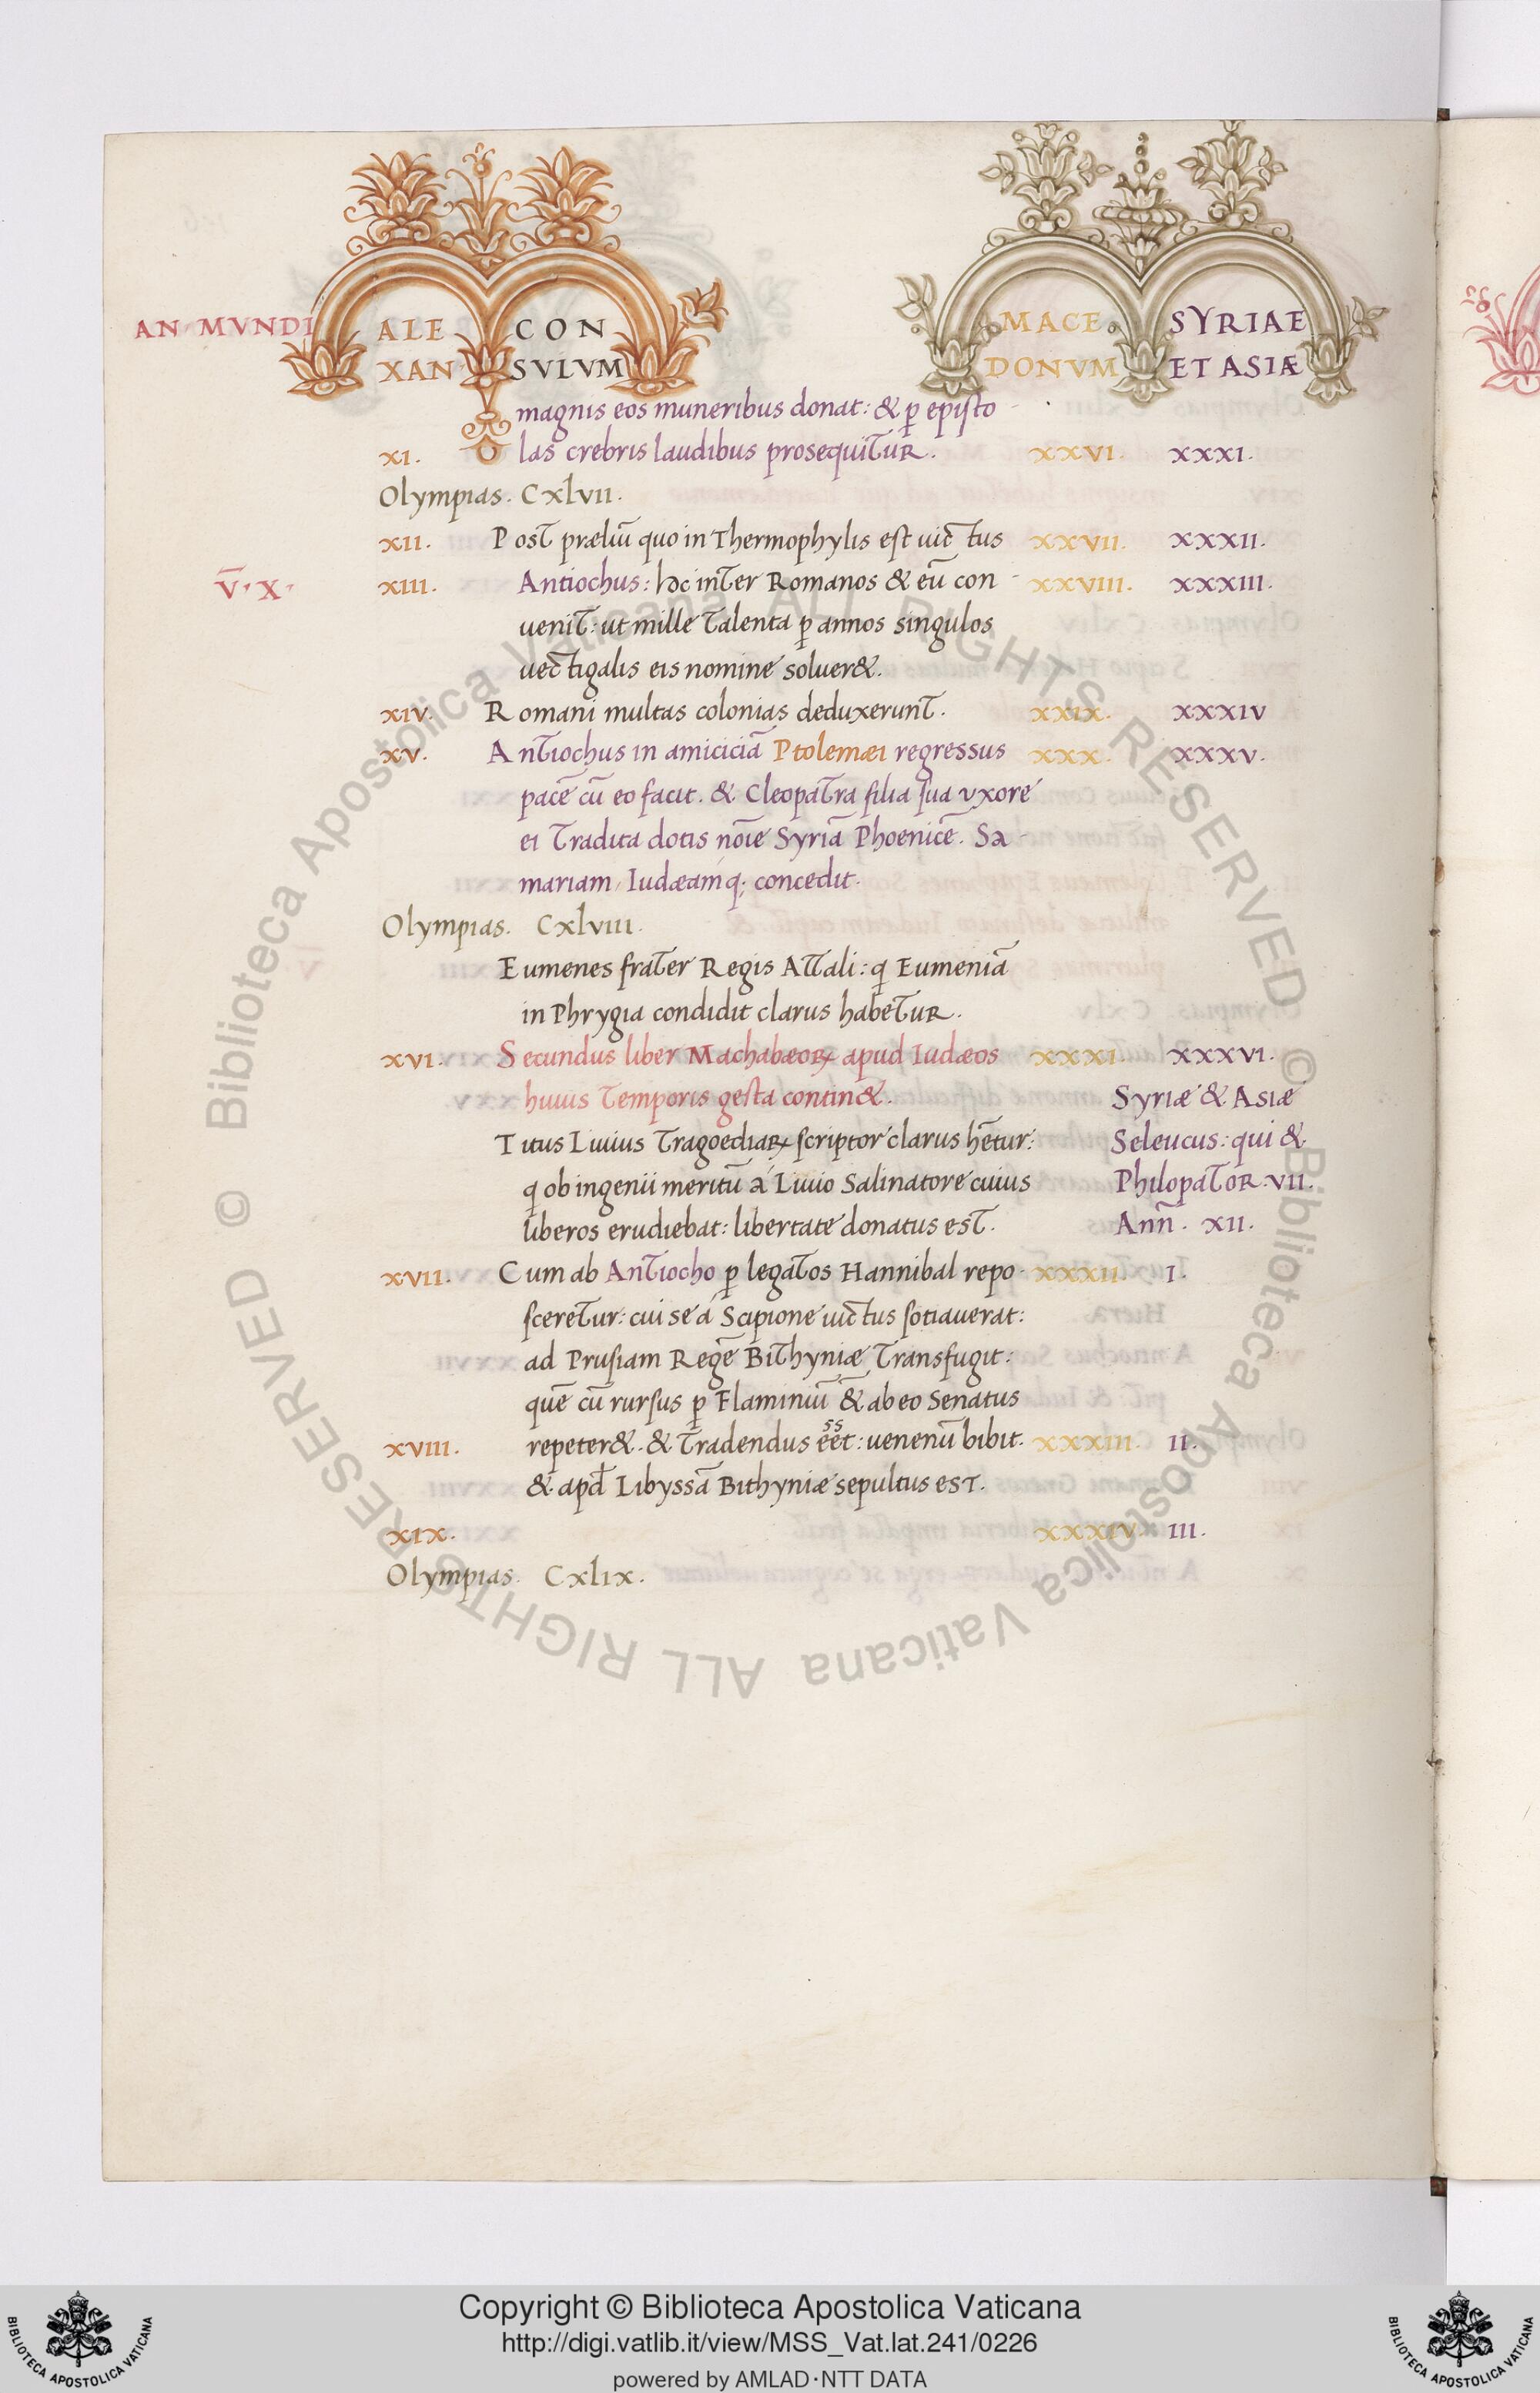 AN MVNDI ALE CON MACE SYRIAE
XAN SVLVM DONVM ET ASIÆ
magnis eos muneribus donat: & ꝑ episto-
XI. las crebris laudibus prosequitur. XXVI. XXXI.
Olympias. CXLVII.
XII. Post præliū quo in Thermophylis est uictus XXVII. XXXII.
V̄·X· XIII. Antiochus: hoc inter Romanos & eū con- XXVIII. XXXIII.
uenit: ut mille talenta ꝑ annos singulos
uectigalis eis nomine soluer&.
XIV. Romani multas colonias deduxerunt. XXIX. XXXIV
XV. Antiochus in amiciciā Ptolemæi regressus XXX. XXXV.
pacē cū eo facit. & Cleopatra filia sua uxore
ei tradita dotis noīe Syriā Phoenicē. Sa-
mariam, Iudæamq; concedit.
Olympias. CXLVIII.
Eumenes frater Regis Attali: q Eumeniā
in Phrygia condidit clarus habetur.
XVI. Secundus liber Machabæoꝝ apud Iudæos XXXI. XXXVI.
huius temporis gesta contin&. Syriæ & Asiæ
Titus Liuius tragoediaꝝ scriptor clarus hētur: Seleucus: qui &
q ob ingenii meritū a Liuio Salinatore cuius Philopator. VII.
liberos erudiebat: libertate donatus est. Ann̄. XII.
XVII. Cum ab Antiocho ꝑ legatos Hannibal repo- XXXII. I.
sceretur: cui se a Scipione uictus sotiauerat:
ad Prusiam Regē Bithyniæ transfugit:
quē cū rursus ꝑ Flaminiū & ab eo Senatus
XVIII. repeter&. & tradendus eēt: uenenū bibit. XXXIII. II.
ss
& apd Libyssā Bithyniæ sepultus est.
XIX. XXXIV. III.
Olympias. CXLIX.
© Biblioteca Apostolica Vaticana ALL RIGHTS RESERVED © Biblioteca Apostolica Vaticana ALL RIGHTS RESERVED
Copyright © Biblioteca Apostolica Vaticana
http://digi.vatlib.it/view/MSS_Vat.lat.241/0226
powered by AMLAD·NTT DATA
BIBLIOTECA APOSTOLICA VATICANA
BIBLIOTECA APOSTOLICA VATICANA